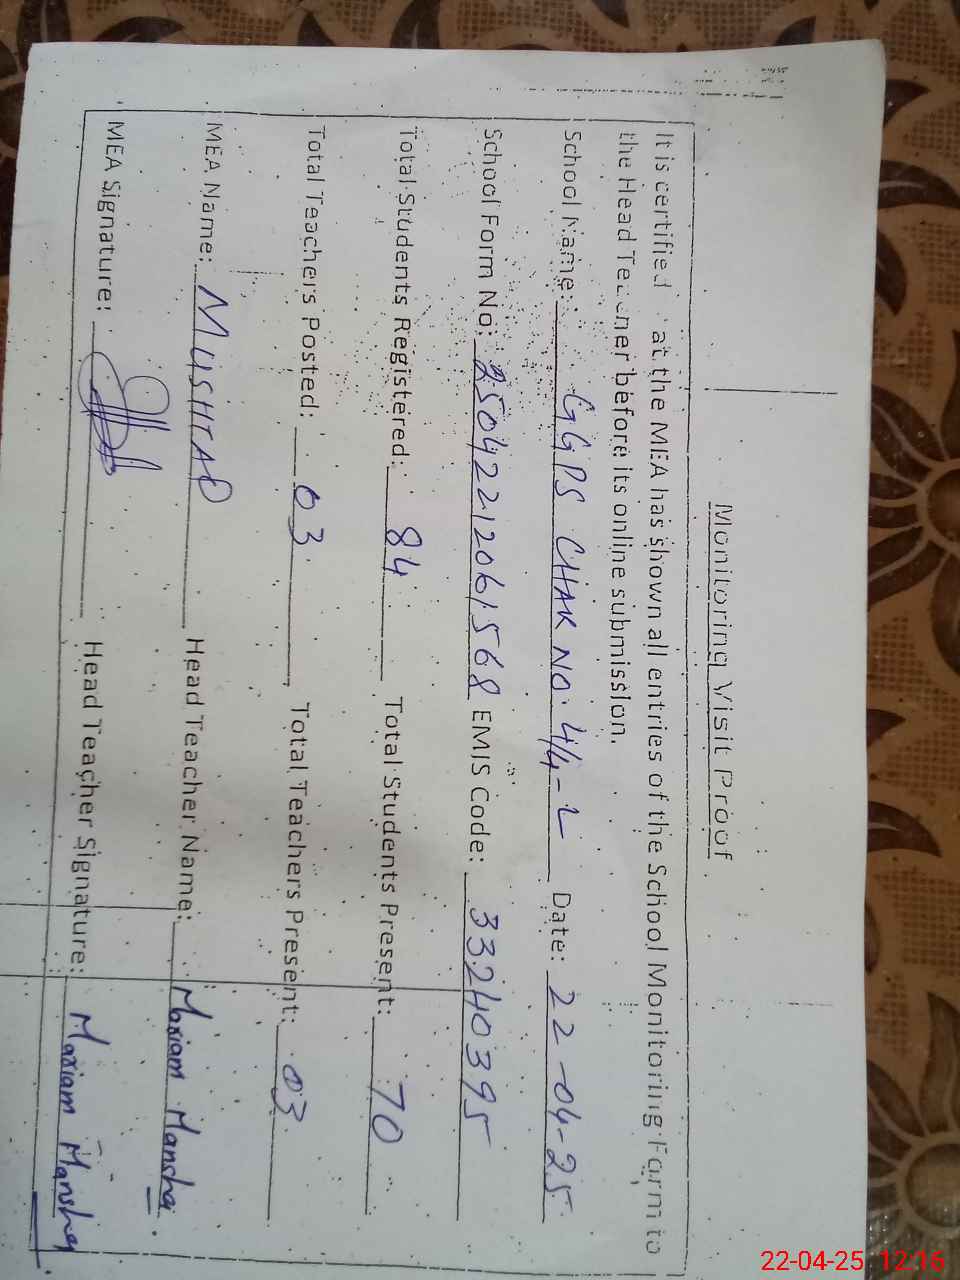 Monitoring Visit Proof
It is certified at the MEA has shown all entries of the School Monitoring Form to
the Head Teacher before its online submission.
School Name: GGPS CHAK NO. 44-2 Date: 22-04-25
School Form No: 25042212061568 EMIS Code: 33240395
Total Students Registered: 84 Total Students Present: 70
Total Teachers Posted: 03 Total Teachers Present: 03
MEA Name: MUSHTAQ Head Teacher Name: Mariam Mansha
MEA Signature: Head Teacher Signature: Mariam Mansha
22-04-25 12:16